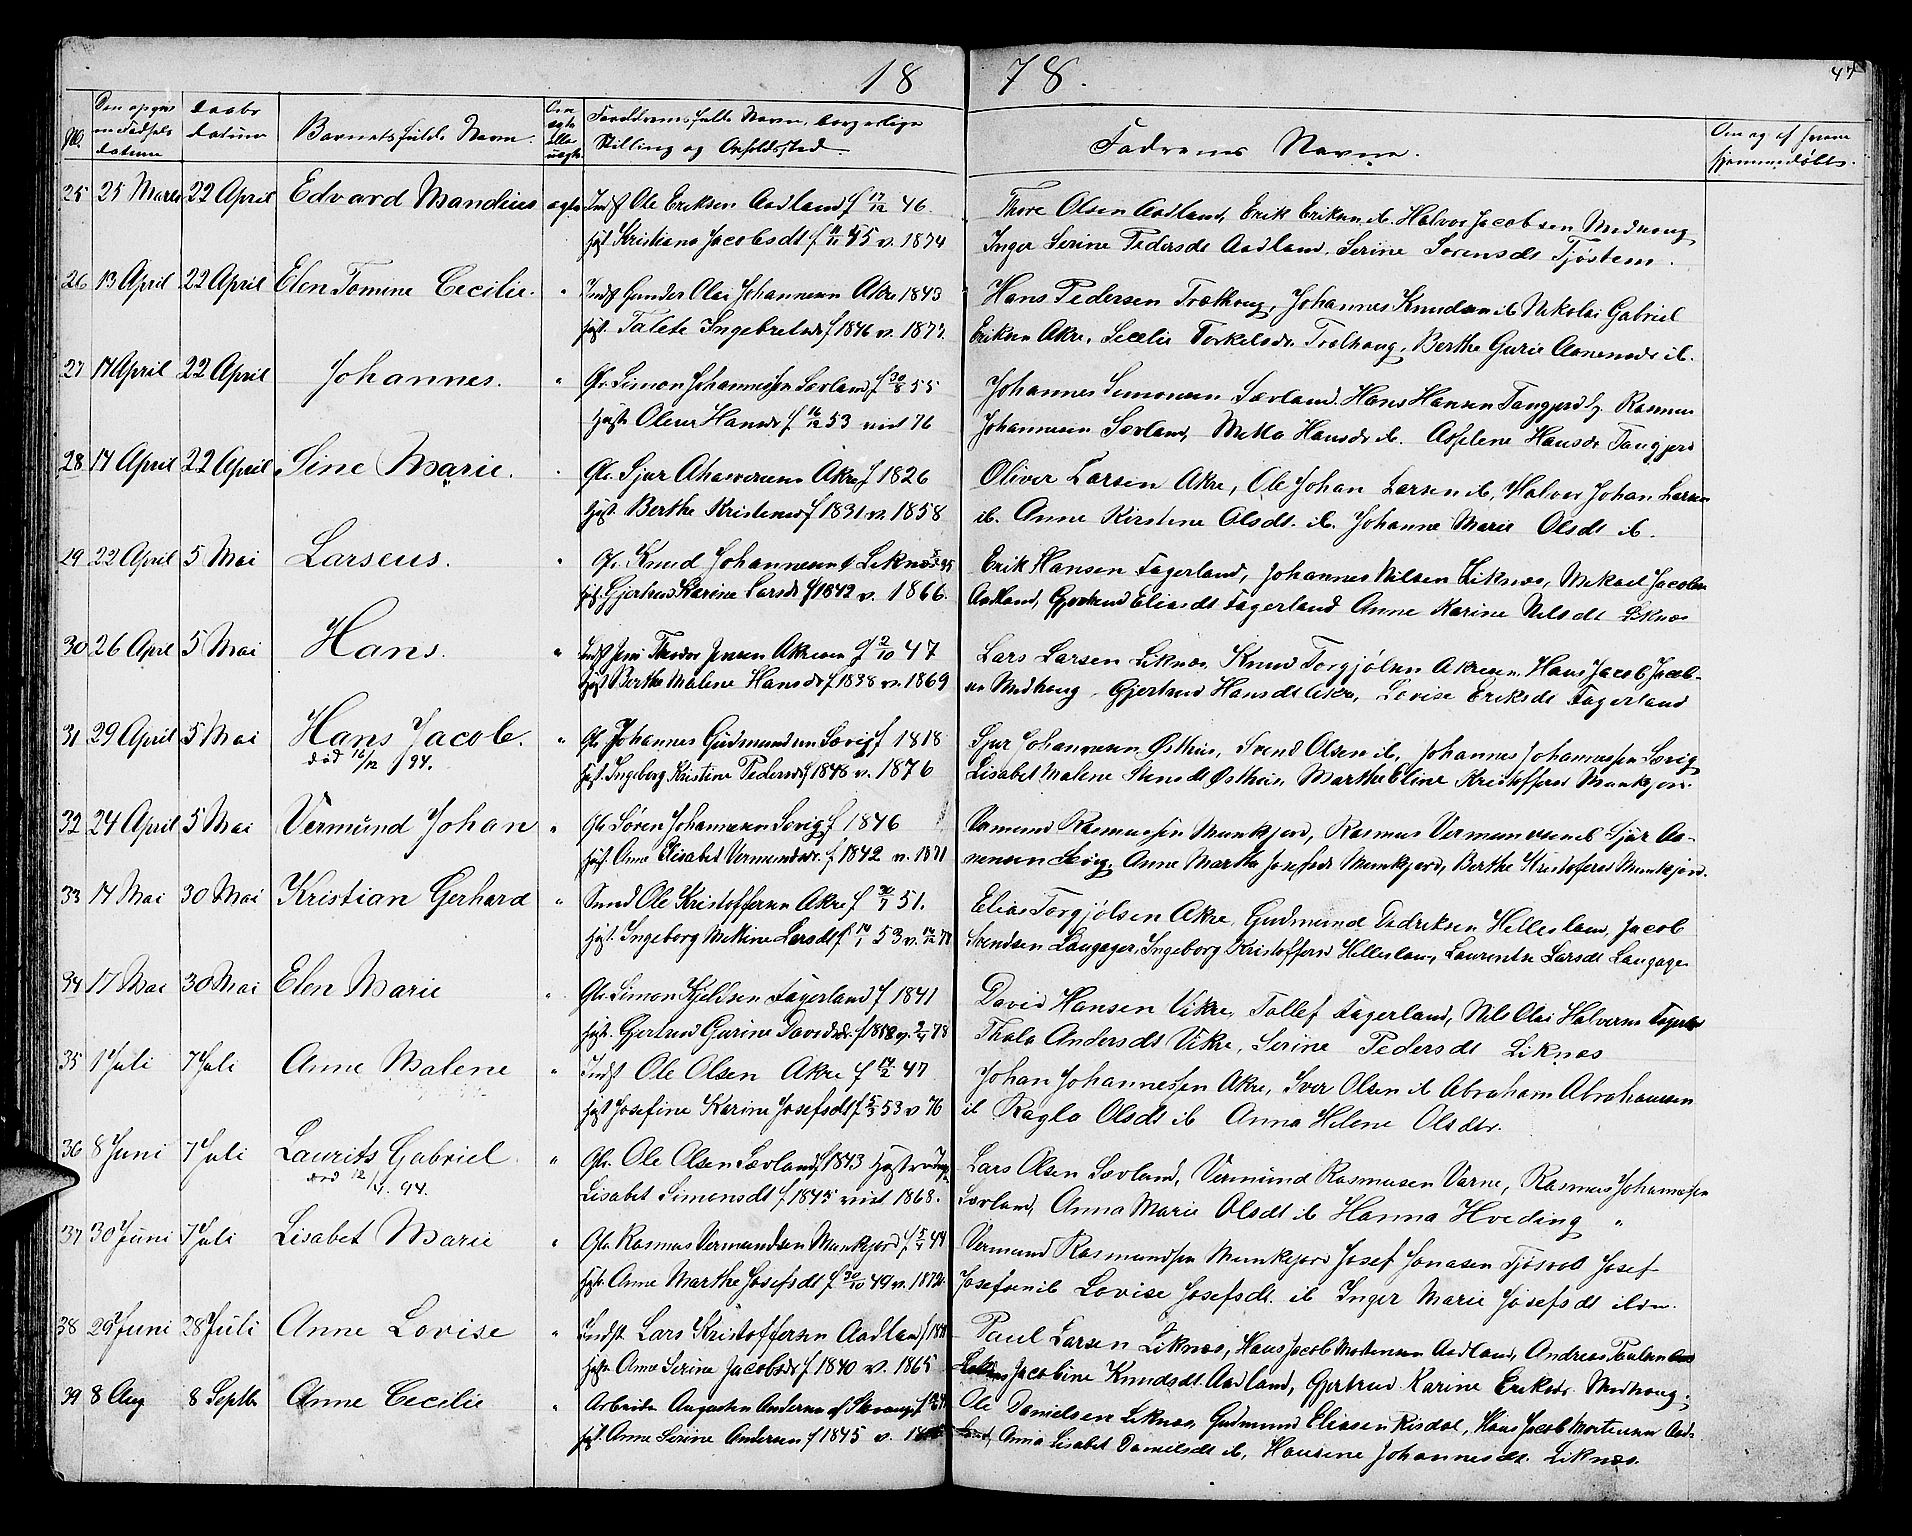 18 78.
47
No.
Den opgivne Fødsels datum
Daabs datum
Barnets fulde Navn.
Om ægte eller uægte
Forældrenes fulde Navn, borgerlige
Stilling og Opholdssted.
Faddrenes Navne.
Om og af hvem
hjemmedøbt.
25 25 Marts 22 April Edvard Mandius ægte Indst Ole Eriksen Aadland f 17/12 46.
Hust. Kristiane Jacobsdt f 45 v. 1874
Thore Olsen Aadland, Erik Eriksen ib. Halvor Jacobsen Medhoug
Inger Serine Pedersdt Aadland, Serine Sørensdt Tjøstem.
26 13 April 22 April Elen Tomine Cecilie. " Indst Gunder Olai Johannesen Akre 1843
Hust. Talete Ingebretsdr f 1846 v. 1877.
Hans Pedersen Trælhoug, Johannes Knudsen ib Nikolai Gabriel
Eriksen Akre, Secelie Torkelsdr. Trælhoug, Berthe Gurie Aanensdr ib.
27 17 April 22 April Johannes. " Gbr. Simon Johannessen Sævland f 30/8 55
Hust Olene Hansdr f 16/12 53 viet 76
Johannes Simonsen Sævland. Hans Hansen Tangjerd Rasmus
Johannesen Sævland, Mette Hansdr ib. Aselene Hansdr. Tangjerd
28 17 April 22 April Sine Marie. " Gbr. Sjur Ahasverusen Akre f 1826
Hust Berthe Kristensdr f 1831 v. 1858
Oliver Larsen Akre, Ole Johan Larsen ib, Halvor Johan Larsen
ib. Anne Kirstine Olsdt. ib. Johanne Marie Olsdt ib.
29 22 April 5 Mai Larseus. " Gbr Knud Johannesen Liknæs 35
Hust. Gjertrud Karine Larsdr f 1842 v. 1866.
Erik Hansen Fagerland, Johannes Nilsen Liknæs, Mikael Jacobsen
Aadland, Gjertrud Eliasdt Fagerland Anne Karine Nilsdt Liknæs
30 26 April 5 Mai Hans. " Indst Jens Theodor Jensen Akreøen f 2/10 47
Hust Berthe Malene Hansdr f 1838 v. 1869
Lars Larsen Liknæs, Knud Torgjølsen Akreøen, Hans Jacob Jacob-
sen Medhoug, Gjertrud Hansdt Akre, Lovise Eriksdt Fagerland
31 29 April 5 Mai Hans Jacob. " Gbr Johannes Gudmundsen Sævig f 1818
død 16/12 94.
Hust. Ingeborg Kristine Pedersdr f 1848 v. 1876
Sjur Johannesen Østhus, Svend Olsen ib, Johannes Johannessen Sævig
Lisabet Malene Stensdt Østhus, Marthe Eline Kristoffersd Munkejord.
32 24 April 5 Mai Vermund Johan " Gbr Søren Johannesen Sævig f 1846
Hust. Anne Elisabet Vermundsdr. f 1842 v. 1871
Vermund Rasmussen Munkejord, Rasmus Vermundsen ib Sjur Aa-
nensen Sævig, Anne Marthe Josefsdr Munkejord, Berthe Kristofersd Munkejord.
33 14 Mai 30 Mai Kristian Gerhard " Smed Ole Kristoffersen Akre f 51.
Hust. Ingeborg Mektine Larsdt f 53 v.
Elias Torgjølsen Akre, Gudmund Didriksen Hilleslam, Jacob
Svendsen Langager, Ingeborg Kristoffersd Hilleslam, Laurentse Larsdt Langage
34 17 Mai 30 Mai Elen Marie " Gbr. Simon Kjeldsen Fagerland f 1841
Hust. Gjertrud Gurine Davidsdr. f v. 2/4 78
David Hansen Vikre, Tollef Fagerland, Nils Olai Halvorsen Fagerland
Thale Andersdt Vikre, Serine Pedersdt Liknæs
35 1 Juli 7 Juli Anne Malene " Indst Ole Olsen Akre f 47
Hust Josefine Karine Josefsdt f 53 v 76
Johan Johannessen Akre, Sver Olsen ib Abraham Abrahamsen
ib Ragla Olsdt ib Anna Helene Olsdtr.
36 8 Juni 7 Juli Laurits Gabriel " Gbr. Ole Olsen Sævland f 1843 Hustru
død 12/4. 94.
Lisabet Simonsdt f 1845 viet 1868.
Lars Olsen Sævland, Vermund Rasmusen Varne, Rasmus Johannessen
Sævland, Anna Marie Olsdt ib Hanna Hveding "
37 30 Juni 7 Juli Lisabet Marie " Gbr. Rasmus Vermundsen Munkejord f 44
Hust. Anne Marthe Josefsdt f 30/10 49 v. 1872
Vermund Rasmundsen Munkejord Josef Jonasen Tjøsvold Josef
Josefsen ib Lovise Josefsdt. ib Inger Marie Josefsdt ibdm.
38 29 Juni 28 Juli Anne Lovise " Indst Lars Kristoffersen Aadland
Hust. Anne Serine Jacobsdr f 1840 v. 1865
Paul Larsen Liknæs, Hans Jacob Mortensen Aadland, Andreas Paulsen
Liknæs Jacobine Knudsdt. Aadland, Gjertrud Karine Eriksdr. Medhoug.
39 8 Aug 8 Septbr Anne Cecilie " Arbeider Augustin Andersen af Stavanger
Hust. Anne Serine Andersen f 1845 v.
Ole Danielsen Liknæs, Gudmund Eliasen Risdal, Hans Jacob Mortensen Aad-
land, Anna Lisabet Danielsdt ib, Hansine Johannesdt. Liknæs.